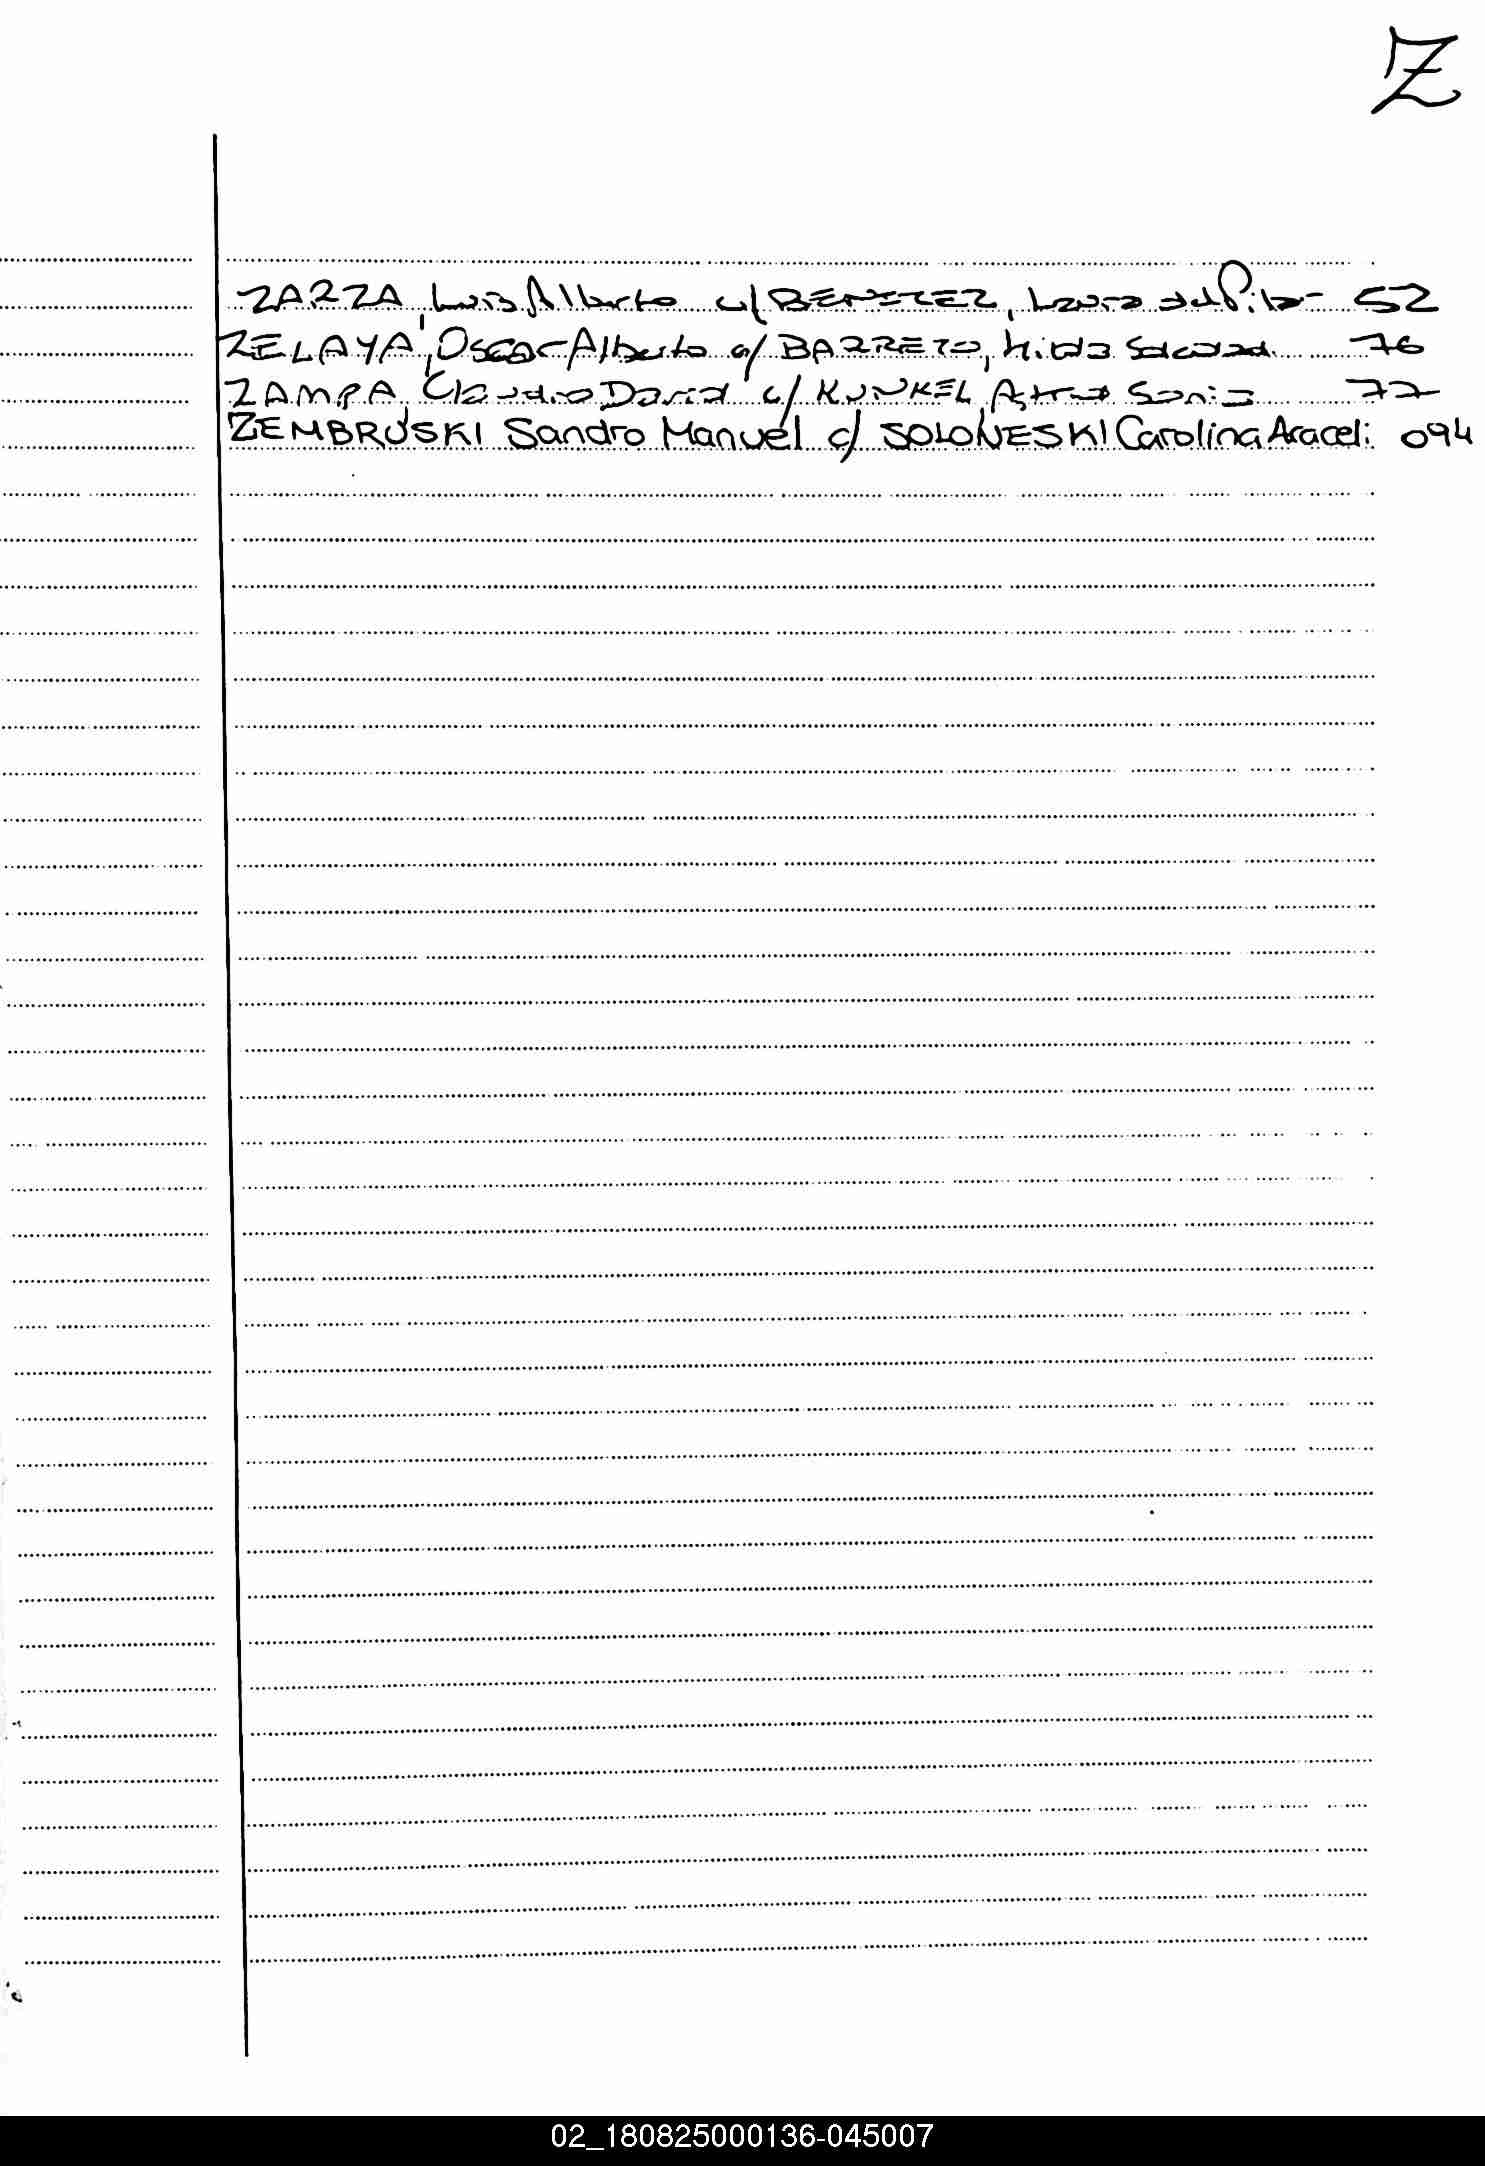 Z
ZARZA, Luis Alberto c/ BENITEZ, Laura del Pilar 52
ZELAYA, Oscar Alberto c/ BARRETO, Hilda Soledad 76
ZAMPA, Claudio David c/ KUNKEL, Astrid Sonia 77
ZEMBRUSKI Sandro Manuel c/ SOLONESKI Carolina Araceli 094
02_180825000136-045007